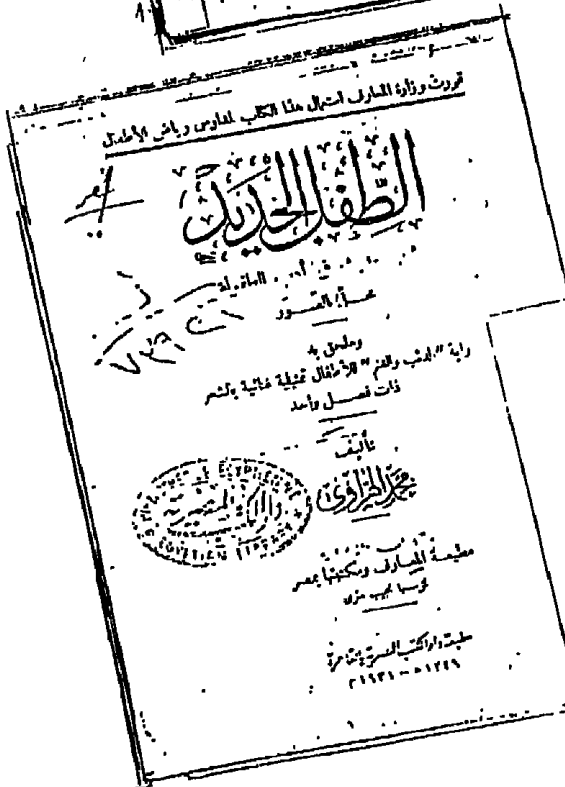 قررت وزارة المعارف استعمال هذا الكتاب لمدارس رياض الأطفال
الطفل الجديد
محلى بالصور
وملحق به
رواية "الذئب والغنم" للأطفال تمثيلية غنائية بالشعر
ذات فصل واحد
تأليف
محمد الهراوي
دار الكتب المصرية
مطبعة المعارف ومكتبتها بمصر
مطبعة دار الكتب المصرية بالقاهرة
١٣٤٩ هـ - ١٩٣١ م